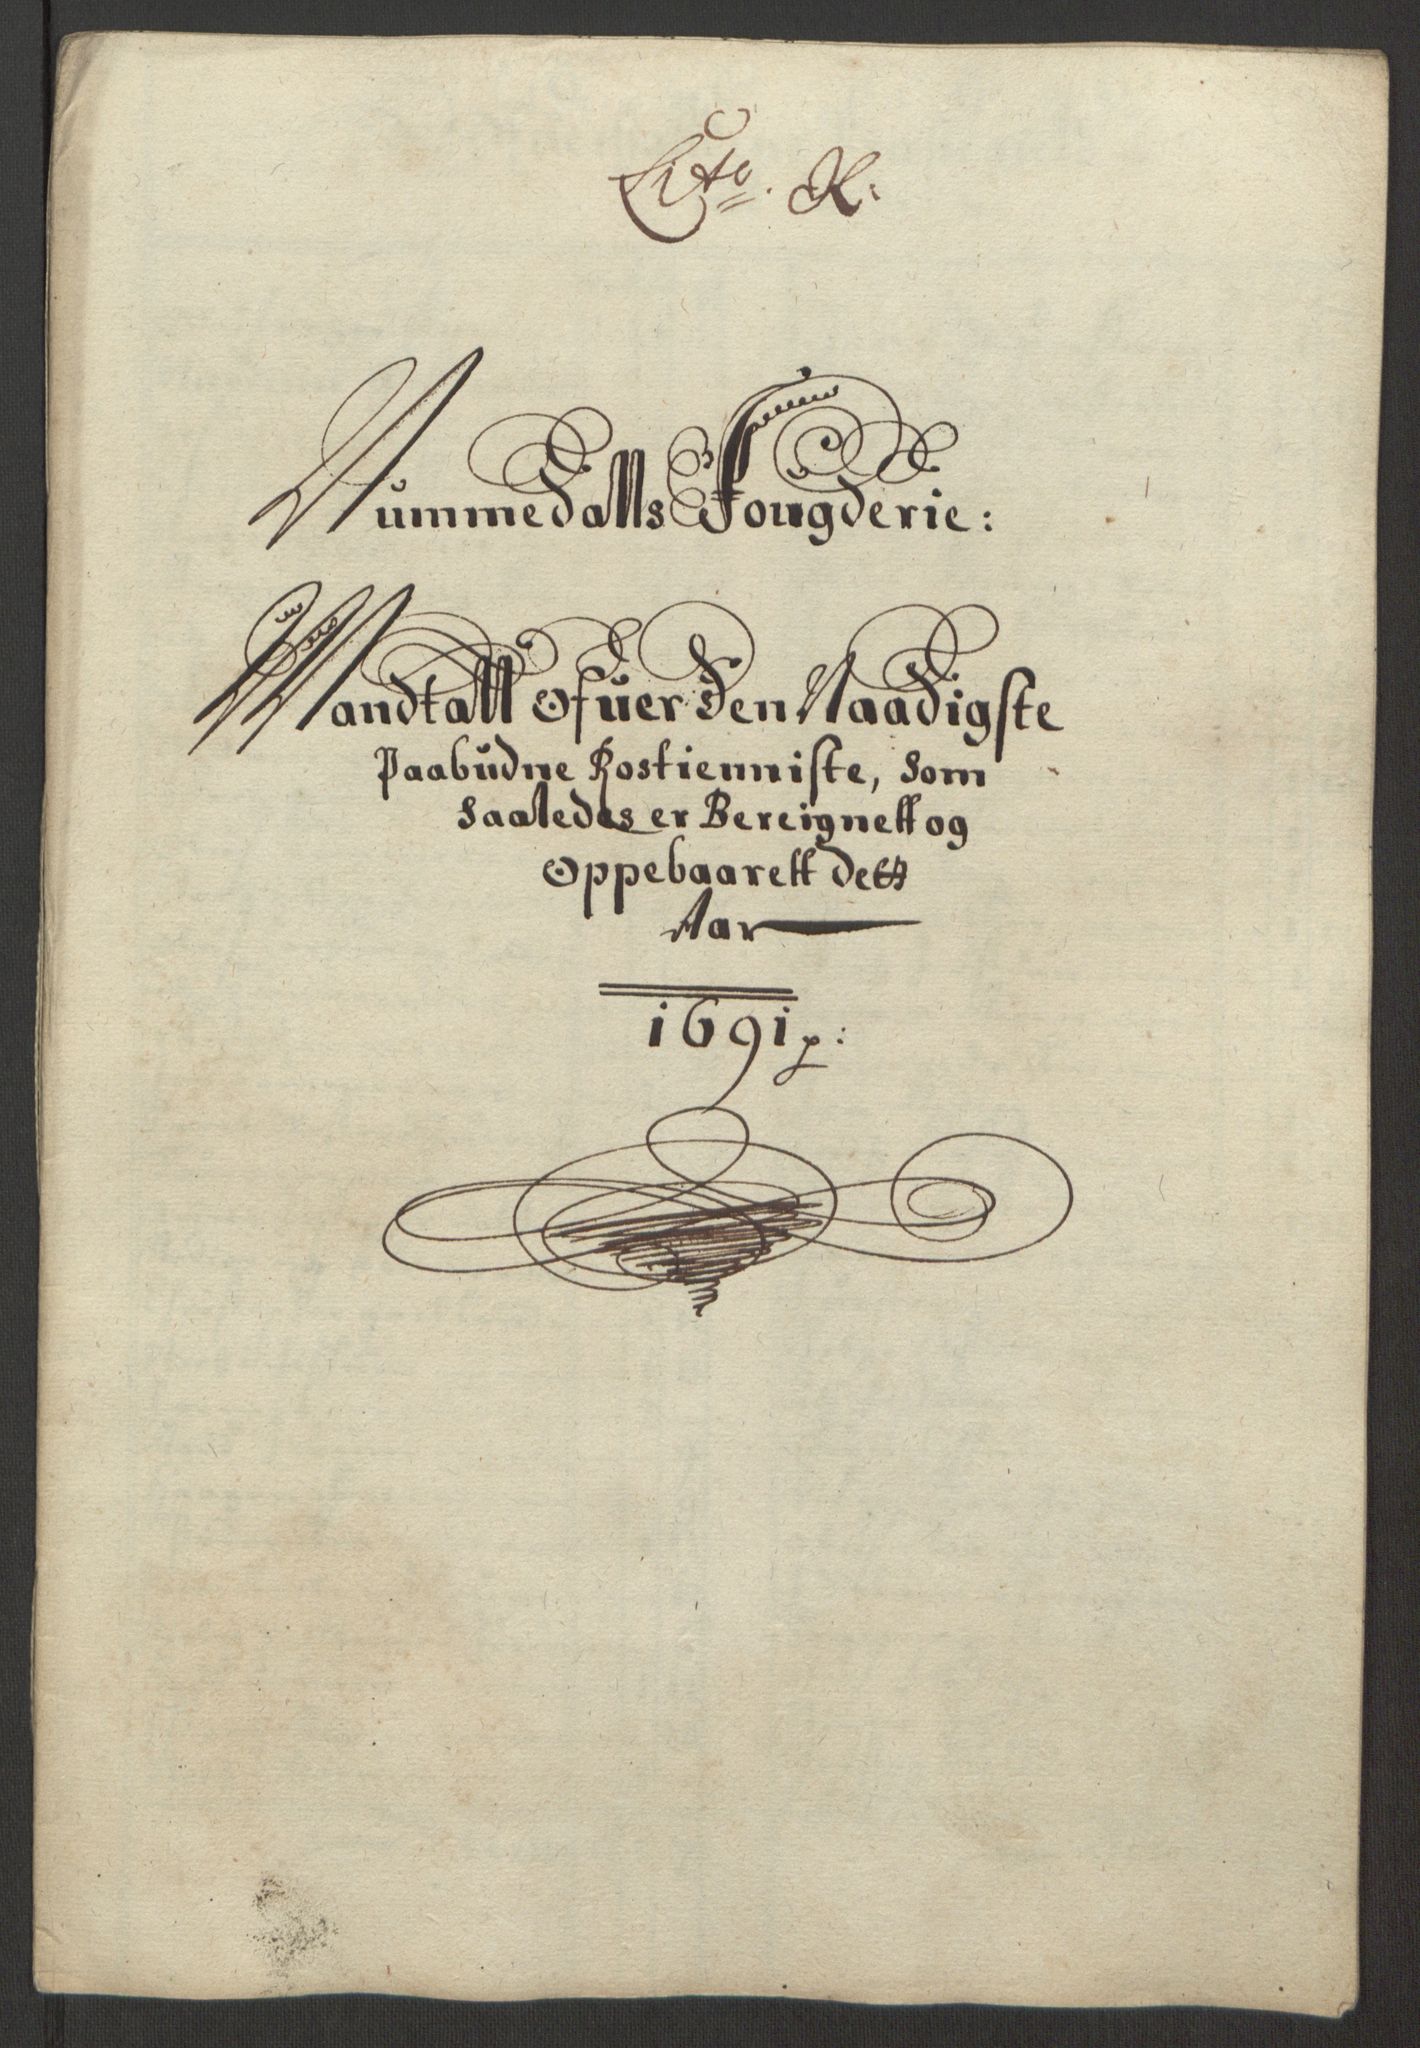 Lit&. K:
Nummedalls Fougderie:
Mandtall Ofuer den Naadigste
Paabudne Rostienniste, Som
Saaledes er Bereignett og
Oppebaarett dett
Aar
1691